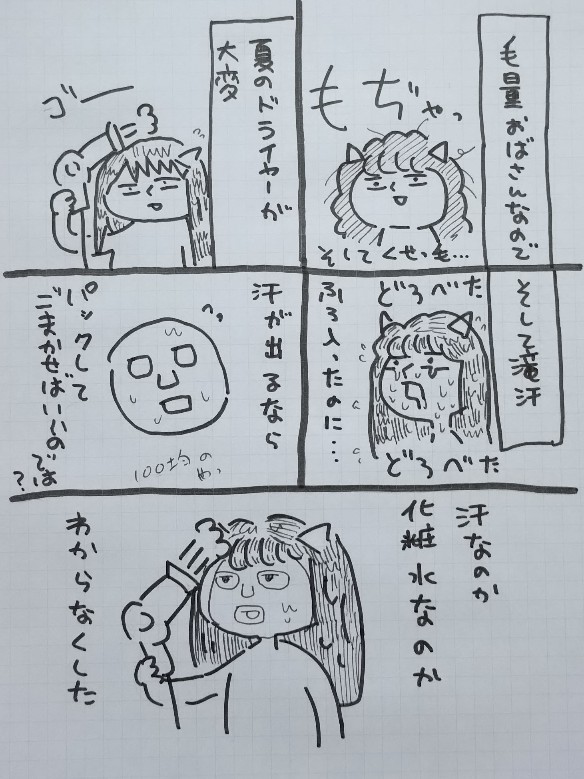 毛量おばさんなので
もぢゃっ
そしてくせっ毛…
夏のドライヤーが
大変
ゴー
そして滝汗
どろべた
ふろ入ったのに…
どろべた
汗が出るなら
パックして
ごまかせばいいの
では?
100均の
汗なのか
化粧水なのか
わからなくした